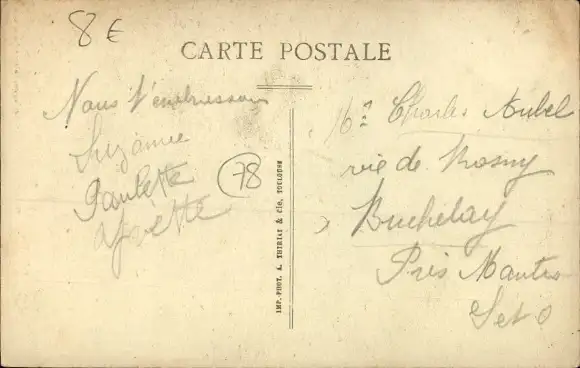 8 €
CARTE POSTALE
Nous t'embrassons
Suzanne
Paulette
Yvette
78
IMP.-PHOT. A. THIRIAT & Cie, TOULOUSE
Charles Aubel
rue de Rosny
Buchelay
Près Mantes
S et O